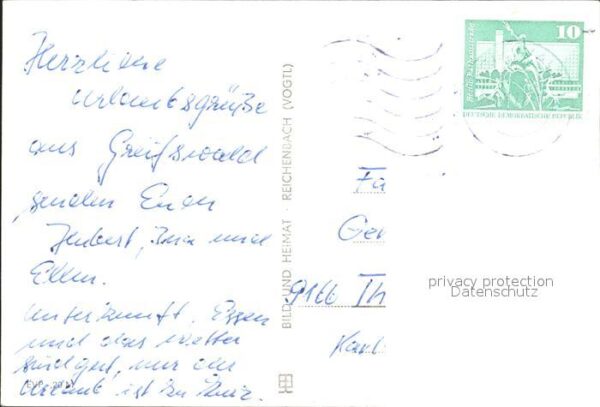 Herzliche
Urlaubsgrüße
aus Greifswald
senden Euch
Herbert, und
Ellen.
Unterkunft, Essen
und das Wetter
sind gut, nur der
Urlaub ist zu kurz.
EVP
BILD UND HEIMAT · REICHENBACH (VOGTL)
10
DEUTSCHE DEMOKRATISCHE REPUBLIK
Fa
Ger
9166 Th
Karl-
privacy protection
Datenschutz